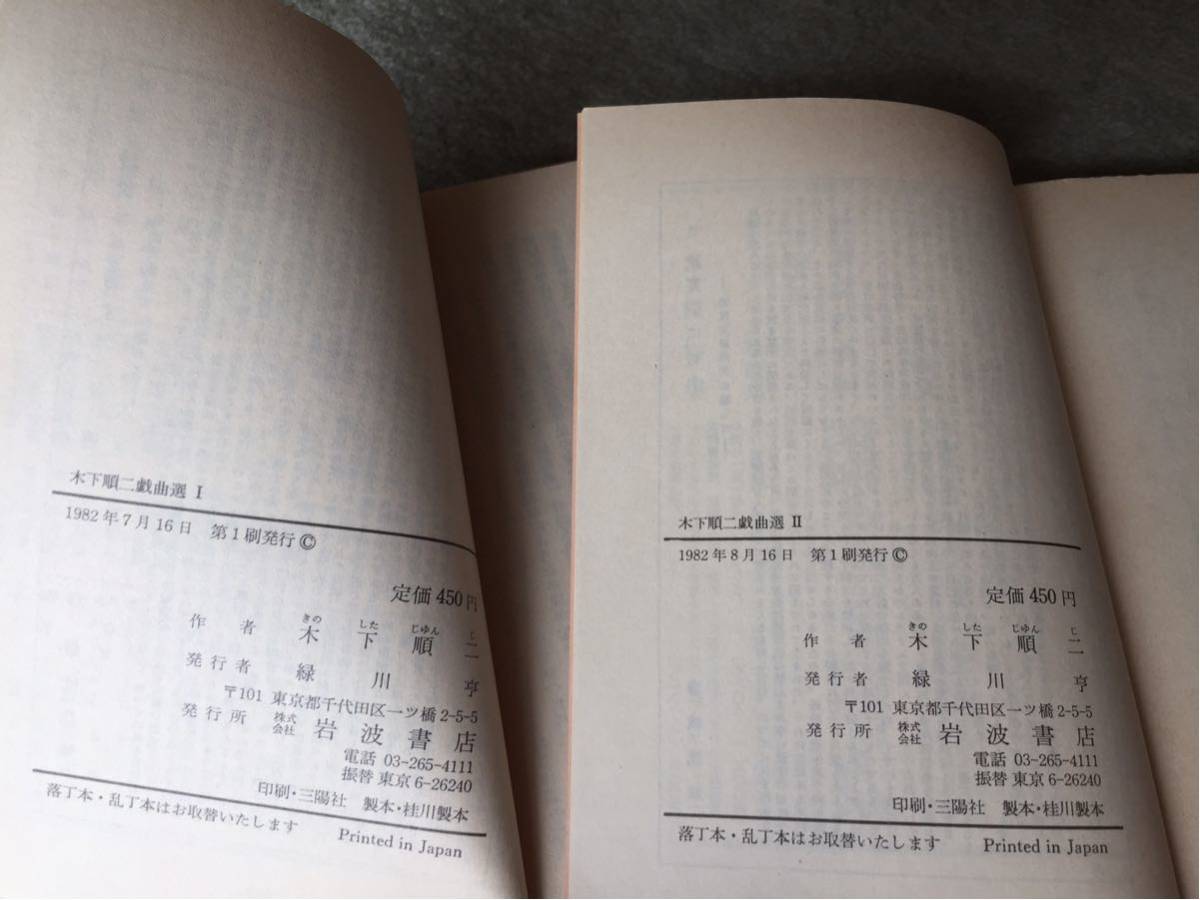 木下順二戯曲選 I
1982年7月16日 第1刷発行©
定価 450円
きの した じゆん じ
作者 木下順二
発行者 緑川亨
〒101 東京都千代田区一ツ橋2-5-5
発行所 株式会社 岩波書店
電話 03-265-4111
振替 東京6-26240
印刷・三陽社 製本・桂川製本
落丁本・乱丁本はお取替いたします Printed in Japan
木下順二戯曲選 II
1982年8月16日 第1刷発行©
定価 450円
きの した じゆん じ
作者 木下順二
発行者 緑川亨
〒101 東京都千代田区一ツ橋2-5-5
発行所 株式会社 岩波書店
電話 03-265-4111
振替 東京6-26240
印刷・三陽社 製本・桂川製本
落丁本・乱丁本はお取替いたします Printed in Japan